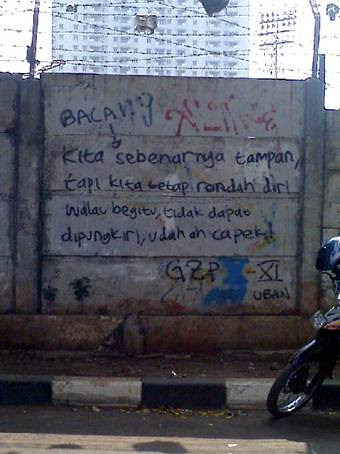 BACA
Kita sebenarnya tampan,
tapi kita tetap rondah diri
Walau begitu, tidak dapat
dipungkiri, udah ah capek!
GZP XI
UBAN